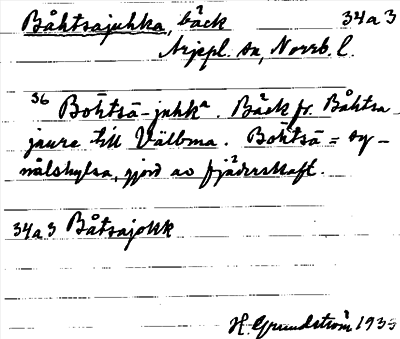 Båhtsajuhka, bäck 34a3
Arjepl. sn, Norrb. l.
36 Bohtsā-juhkᵃ. Bäck fr. Båhtsa
jaure till Välbma. Bohtsā = sy-
nålshylsa, gjord av fjäderskaft.
34a3 Båtsajokk
H. Grundström 1935